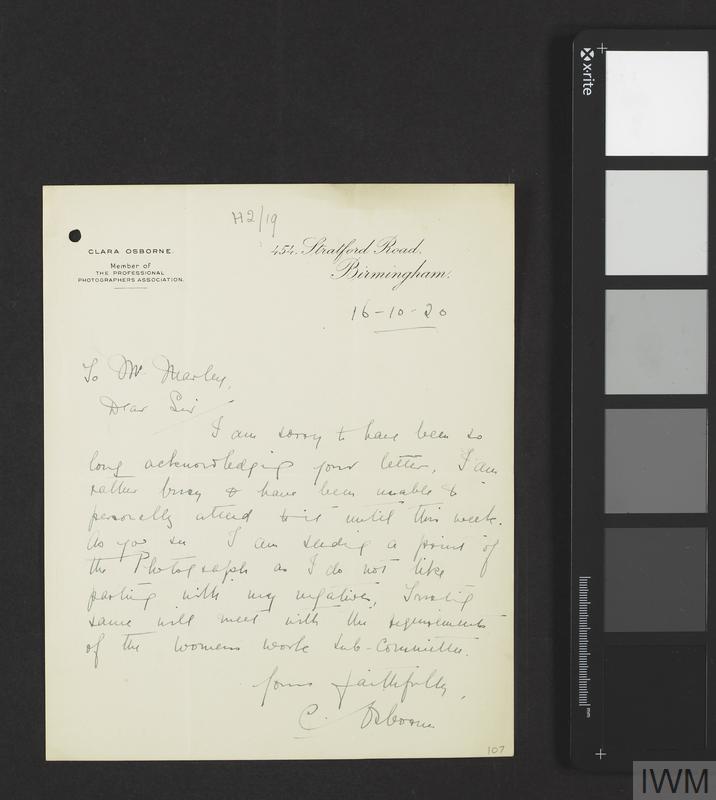 H2/19
CLARA OSBORNE.
Member of
THE PROFESSIONAL
PHOTOGRAPHERS ASSOCIATION.
454, Stratford Road,
Birmingham.
16-10-20
To Mr Marley,
Dear Sir
I am sorry to have been so
long acknowledging your letter, I am
rather busy & have been unable to
personally attend to it until this week.
As you see I am sending a print of
the Photograph as I do not like
parting with my negatives, Trusting
same will meet with the requirements
of the Womens Work Sub-Committee.
Yours faithfully,
C. Osborne
107
x-rite
mm
IWM